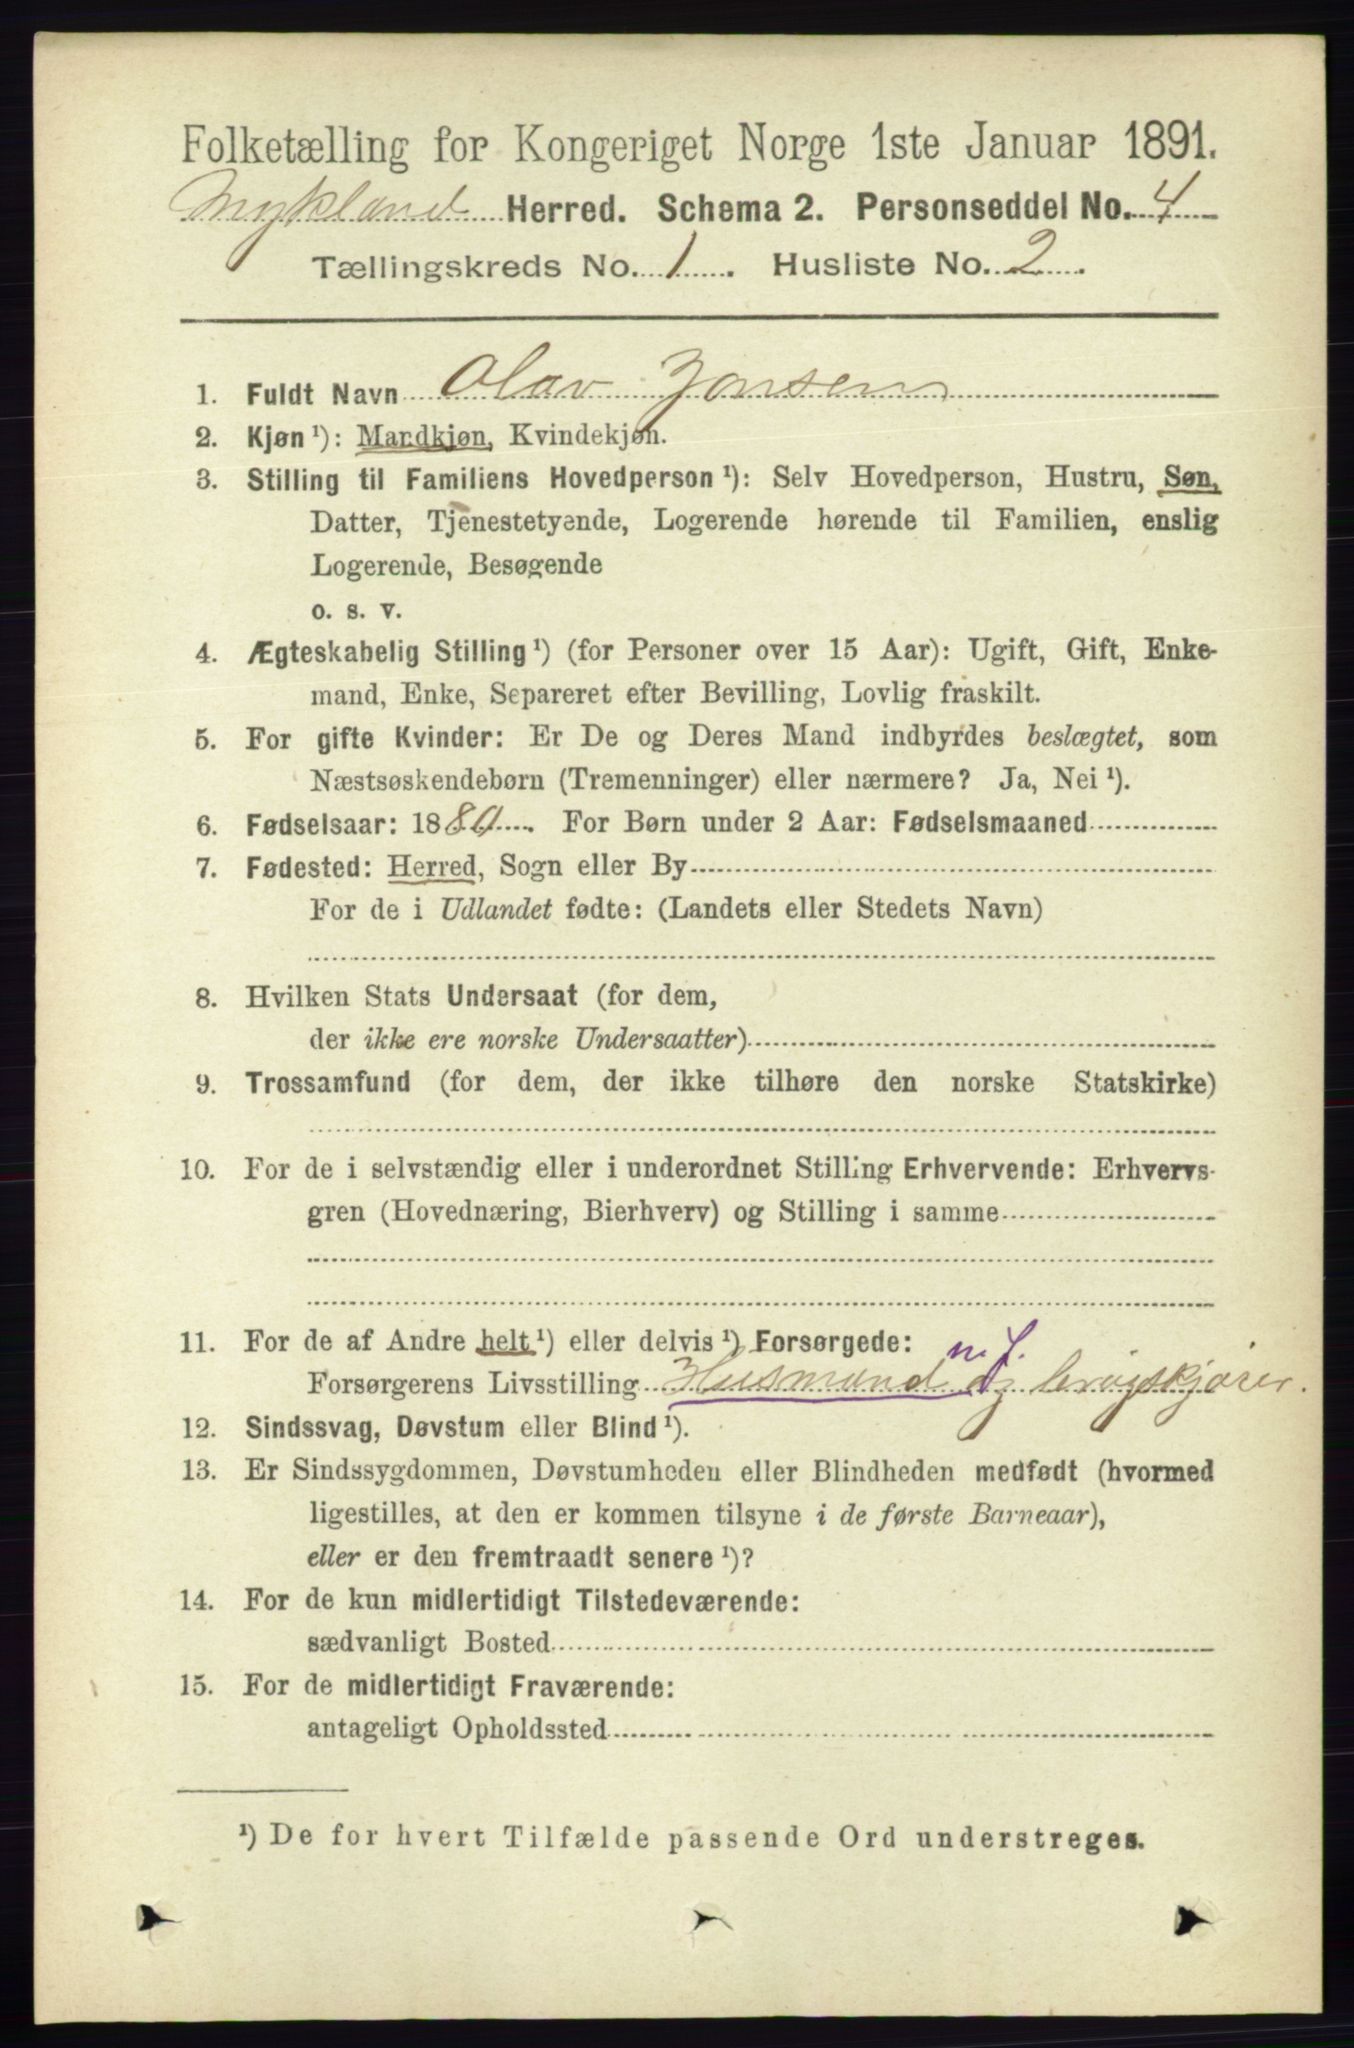 Folketælling for Kongeriget Norge 1ste Januar 1891.
Mykland Herred. Schema 2. Personseddel No. 4
Tællingskreds No. 1. Husliste No. 2.
1. Fuldt Navn Olav Jonsen
2. Kjøn ¹): Mandkjøn, Kvindekjøn.
3. Stilling til Familiens Hovedperson ¹): Selv Hovedperson, Hustru, Søn,
Datter, Tjenestetyende, Logerende hørende til Familien, enslig
Logerende, Besøgende
o. s. v.
4. Ægteskabelig Stilling ¹) (for Personer over 15 Aar): Ugift, Gift, Enke-
mand, Enke, Separeret efter Bevilling, Lovlig fraskilt.
5. For gifte Kvinder: Er De og Deres Mand indbyrdes beslægtet, som
Næstsøskendebørn (Tremenninger) eller nærmere? Ja, Nei ¹).
6. Fødselsaar: 1880. For Børn under 2 Aar: Fødselsmaaned
7. Fødested: Herred, Sogn eller By
For de i Udlandet fødte: (Landets eller Stedets Navn)
8. Hvilken Stats Undersaat (for dem,
der ikke ere norske Undersaatter)
9. Trossamfund (for dem, der ikke tilhøre den norske Statskirke)
10. For de i selvstændig eller i underordnet Stilling Erhvervende: Erhvervs-
gren (Hovednæring, Bierhverv) og Stilling i samme
11. For de af Andre helt ¹) eller delvis ¹) Forsørgede:
Forsørgerens Livsstilling Husmand og
12. Sindssvag, Døvstum eller Blind ¹).
13. Er Sindssygdommen, Døvstumheden eller Blindheden medfødt (hvormed
ligestilles, at den er kommen tilsyne i de første Barneaar),
eller er den fremtraadt senere ¹)?
14. For de kun midlertidigt Tilstedeværende:
sædvanligt Bosted
15. For de midlertidigt Fraværende:
antageligt Opholdssted
¹) De for hvert Tilfælde passende Ord understreges.